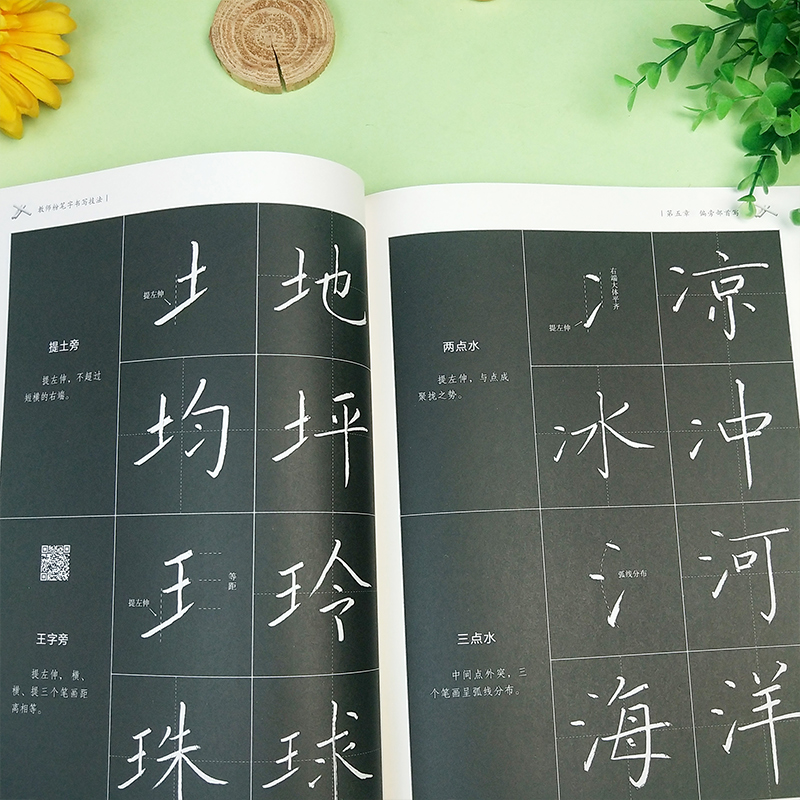 教师粉笔字书写技法
提土旁
提左伸，不超过
短横的右端。
提左伸
地
均
坪
王字旁
提左伸，横、
横、提三个笔画距
离相等。
提左伸
等距
玲
珠
球
第五章 偏旁部首写
两点水
提左伸，与点成
聚拢之势。
提左伸
右端大体平齐
冫
凉
冰
冲
三点水
中间点外突，三
个笔画呈弧线分布。
弧线分布
氵
河
海
洋